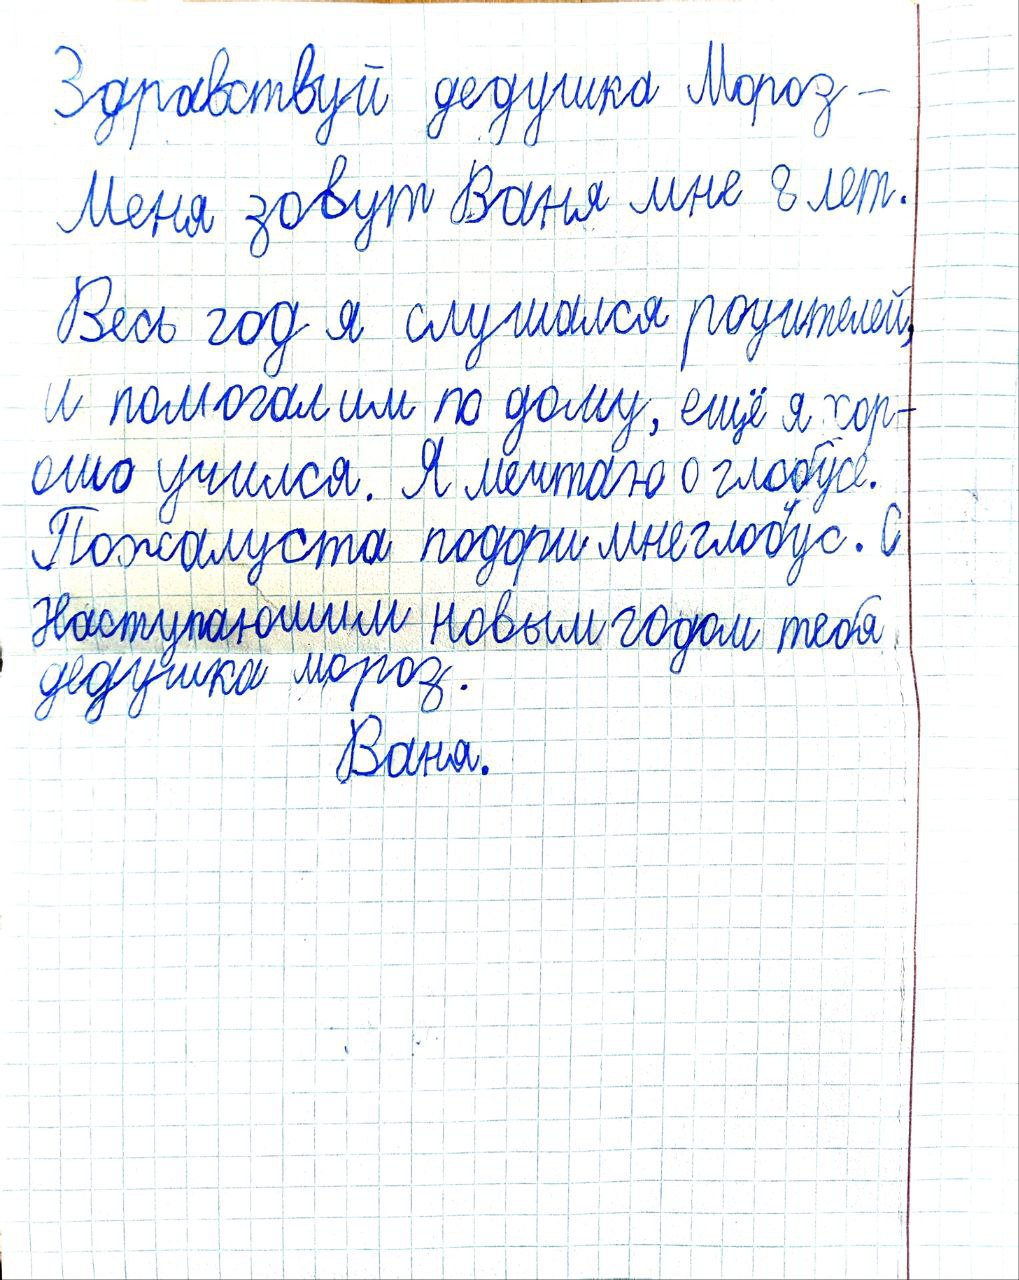 Здравствуй дедушка Мороз –
Меня зовут Ваня мне 8 лет.
Весь год я слушался родителей,
и помогал им по дому, ещё я хор-
ошо учился. Я мечтаю о глобусе.
Пожалуста подари мне глобус. С
Наступаюшим новым годом тебя
дедушка мороз.
Ваня.